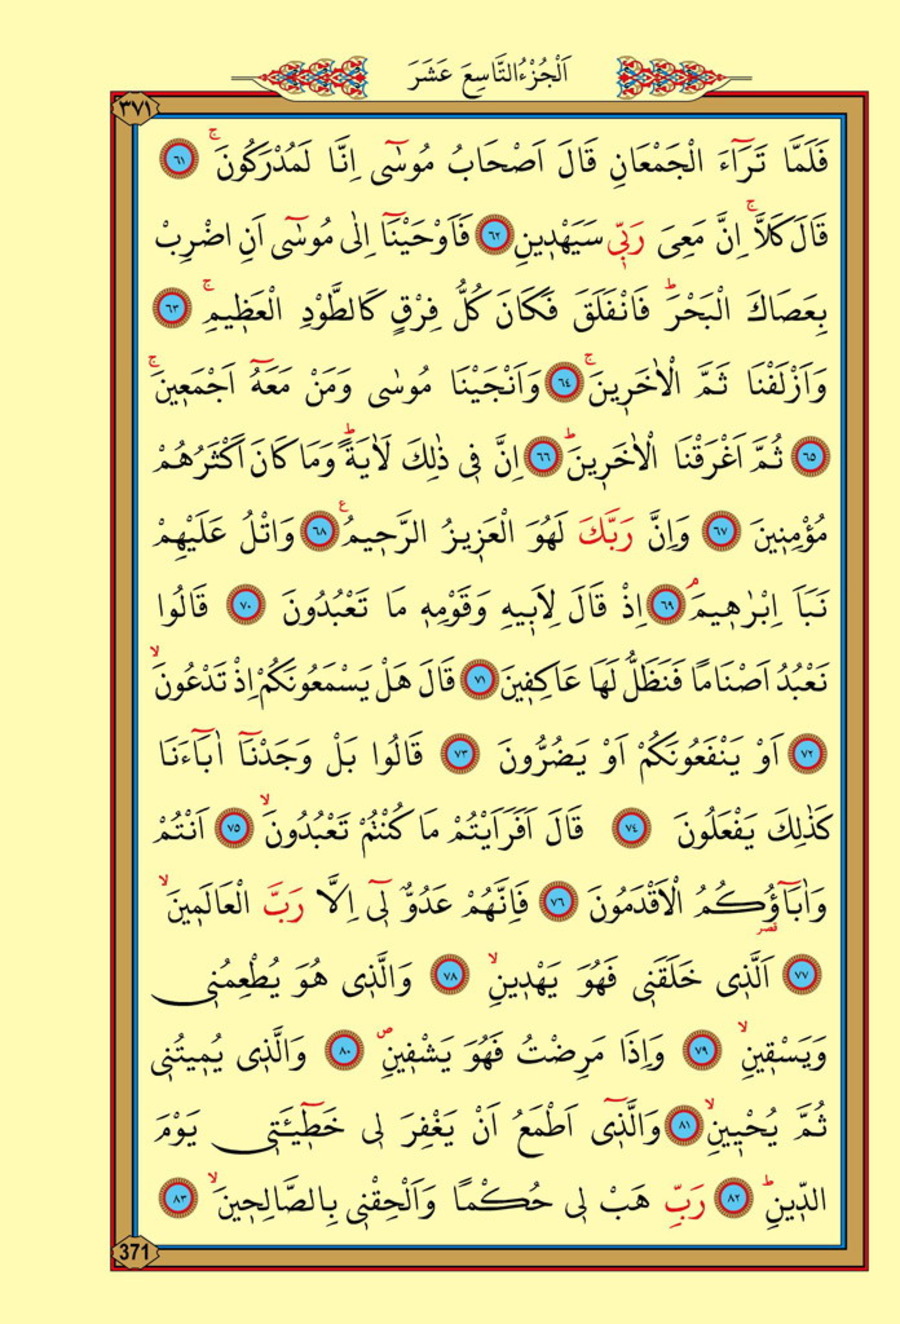 اَلْجُزْءُالتَّاسِعَ عَشَرَ
٣٧١
فَلَمَّا تَرَٓاءَ الْجَمْعَانِ قَالَ اَصْحَابُ مُوسٰٓى اِنَّا لَمُدْرَكُونَۚ ٦١
قَالَ كَلَّاۚ اِنَّ مَعِيَ رَبّ۪ي سَيَهْد۪ينِ ٦٢ فَاَوْحَيْنَٓا اِلٰى مُوسٰٓى اَنِ اضْرِبْ
بِعَصَاكَ الْبَحْرَۜ فَانْفَلَقَ فَكَانَ كُلُّ فِرْقٍ كَالطَّوْدِ الْعَظ۪يمِۚ ٦٣
وَاَزْلَفْنَا ثَمَّ الْاٰخَر۪ينَۚ ٦٤ وَاَنْجَيْنَا مُوسٰى وَمَنْ مَعَهُٓ اَجْمَع۪ينَۚ
٦٥ ثُمَّ اَغْرَقْنَا الْاٰخَر۪ينَۜ ٦٦ اِنَّ ف۪ي ذٰلِكَ لَاٰيَةًۜ وَمَا كَانَ اَكْثَرُهُمْ
مُؤْمِن۪ينَ ٦٧ وَاِنَّ رَبَّكَ لَهُوَ الْعَز۪يزُ الرَّح۪يمُ۟ ٦٨ وَاتْلُ عَلَيْهِمْ
نَبَاَ اِبْرٰه۪يمَۢ ٦٩ اِذْ قَالَ لِاَب۪يهِ وَقَوْمِه۪ مَا تَعْبُدُونَ ٧٠ قَالُوا
نَعْبُدُ اَصْنَامًا فَنَظَلُّ لَهَا عَاكِف۪ينَ ٧١ قَالَ هَلْ يَسْمَعُونَكُمْ اِذْ تَدْعُونَۙ
٧٢ اَوْ يَنْفَعُونَكُمْ اَوْ يَضُرُّونَ ٧٣ قَالُوا بَلْ وَجَدْنَٓا اٰبَٓاءَنَا
كَذٰلِكَ يَفْعَلُونَ ٧٤ قَالَ اَفَرَاَيْتُمْ مَا كُنْتُمْ تَعْبُدُونَۙ ٧٥ اَنْتُمْ
وَاٰبَٓاؤُ۬كُمُ الْاَقْدَمُونَ ٧٦ فَاِنَّهُمْ عَدُوٌّ ل۪ٓي اِلَّا رَبَّ الْعَالَم۪ينَۙ
قصر
٧٧ اَلَّذ۪ي خَلَقَن۪ي فَهُوَ يَهْد۪ينِۙ ٧٨ وَالَّذ۪ي هُوَ يُطْعِمُن۪ي
وَيَسْق۪ينِۙ ٧٩ وَاِذَا مَرِضْتُ فَهُوَ يَشْف۪ينِۖ ٨٠ وَالَّذ۪ي يُم۪يتُن۪ي
ثُمَّ يُحْي۪ينِۙ ٨١ وَالَّذ۪ٓي اَطْمَعُ اَنْ يَغْفِرَ ل۪ي خَط۪ٓيـَٔت۪ي يَوْمَ
الدّ۪ينِۜ ٨٢ رَبِّ هَبْ ل۪ي حُكْمًا وَاَلْحِقْن۪ي بِالصَّالِح۪ينَۙ ٨٣
371